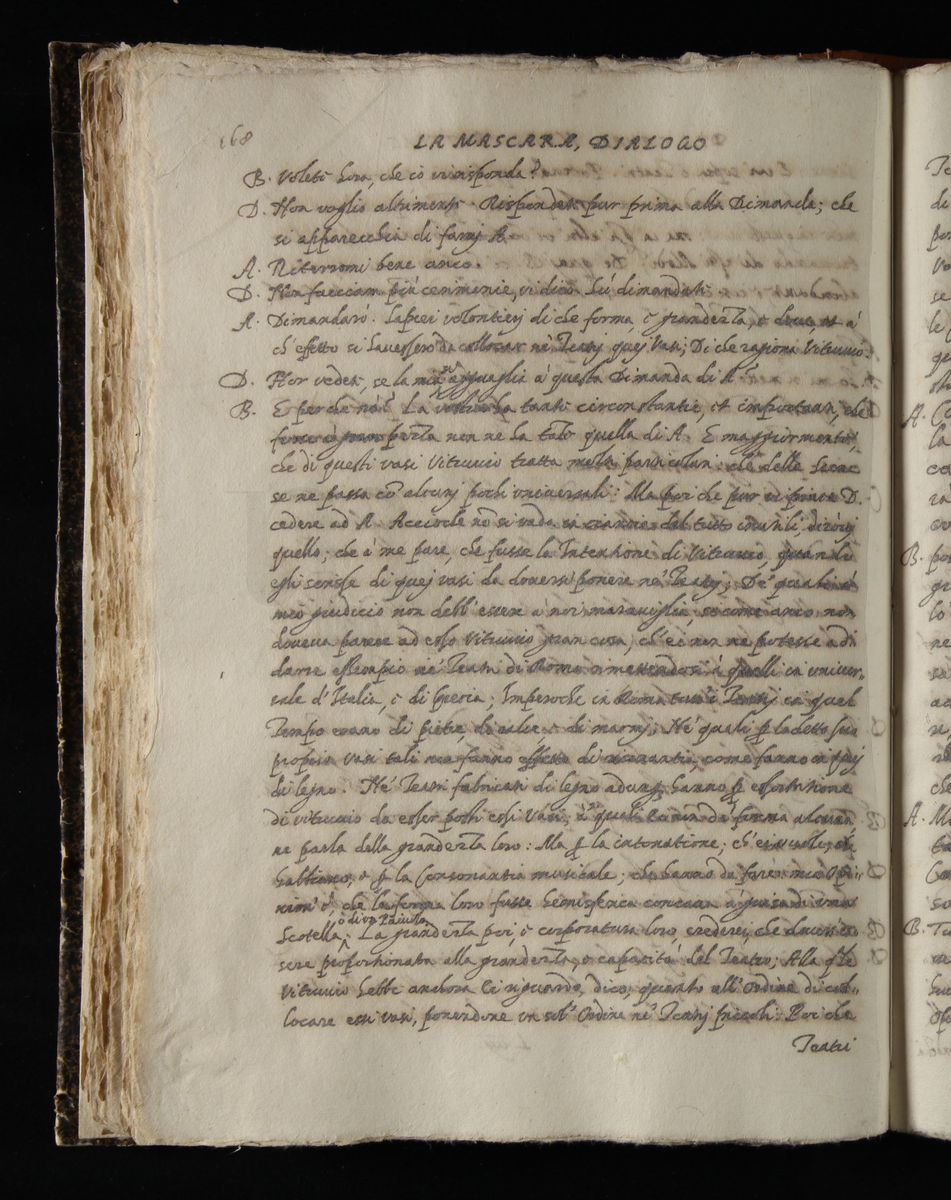 168
LA MASCARA, DIALOGO
B. Volete hora, che io vi risponda?
D. Non voglio altrimenti. Respondete pur prima alla Dimanda; che
si apparecchia di farvj A.
A. Ritorromi bene anco.
D. Non facciam più cerimonie, vi dico. Sù dimandate.
A. Dimandarò. Saprei volontierj di che forma, ò grandezza, e dove, et à
ch' effetto si havessero da collocar ne' Teatrj quej Vasi; Di che ragiona Vitruvio.
D. Hor vedete, se la mia si agguaglia à questa Dimanda di A.
B. E perche nò? La vostra ha tante circonstantie, et importanze, che
forse non ne ha tante quella di A. E maggiormente,
che di questi vasi Vitruvio tratta molti particolari: che delle Scene
se ne passa cõ alcunj pochi universali: Ma poi che pur vi piace D.
cedere ad A. Accioche nõ si vada in ciancie del tutto inutili, diròvj
quello; che à me pare, che fusse la Intentione di Vitruvio, quando
egli scrisse di quej vasi da doversi ponere ne' Teatrj; De' quali à
mio giudicio non debb' essere à noi maraviglia, se come anco non
doveva parere ad esso Vitruvio gran cosa, ch' ei non ne potesse ad=
darre essempio ne' Teatri di Roma rimettendosi à quelli in univer=
sale d' Italia, ò di Grecia; Imperoche in Roma tutti i Teatrj in quel
Tempo erano di pietre, di calce e di marmj; Ne' quali p̱ la detta sua
proposta vasi tali non fanno effetto di risonantia, come fanno in quej
di legno. Ne' Teatri fabricati di legno adunq̱ hanno p̱ essortatione
di vitruvio da esser posti essi Vasi; à quali ei non dà forma alcuna,
ne parla della grandezza loro: Ma p̱ la intonatione; ch' ei vuole, che
habbiano, e p̱ la Consonantia musicale; che hanno da fare: mia Opi=
nion' è, che la forma loro fusse hemisferica concava à guisa di una
ò di un Paiuolo
Scotella. La grandezza poi, ò corporatura loro, crederei, che dovess' es=
sere proportionata alla grandezza, e capacità del Teatro; Alla q̃le
Vitruvio hebbe anchora riguardo, dico, quanto all' Ordine di col=
locare essi vasi, ponendone un sol' Ordine ne' Teatrj piccioli: Poi che
Teatri